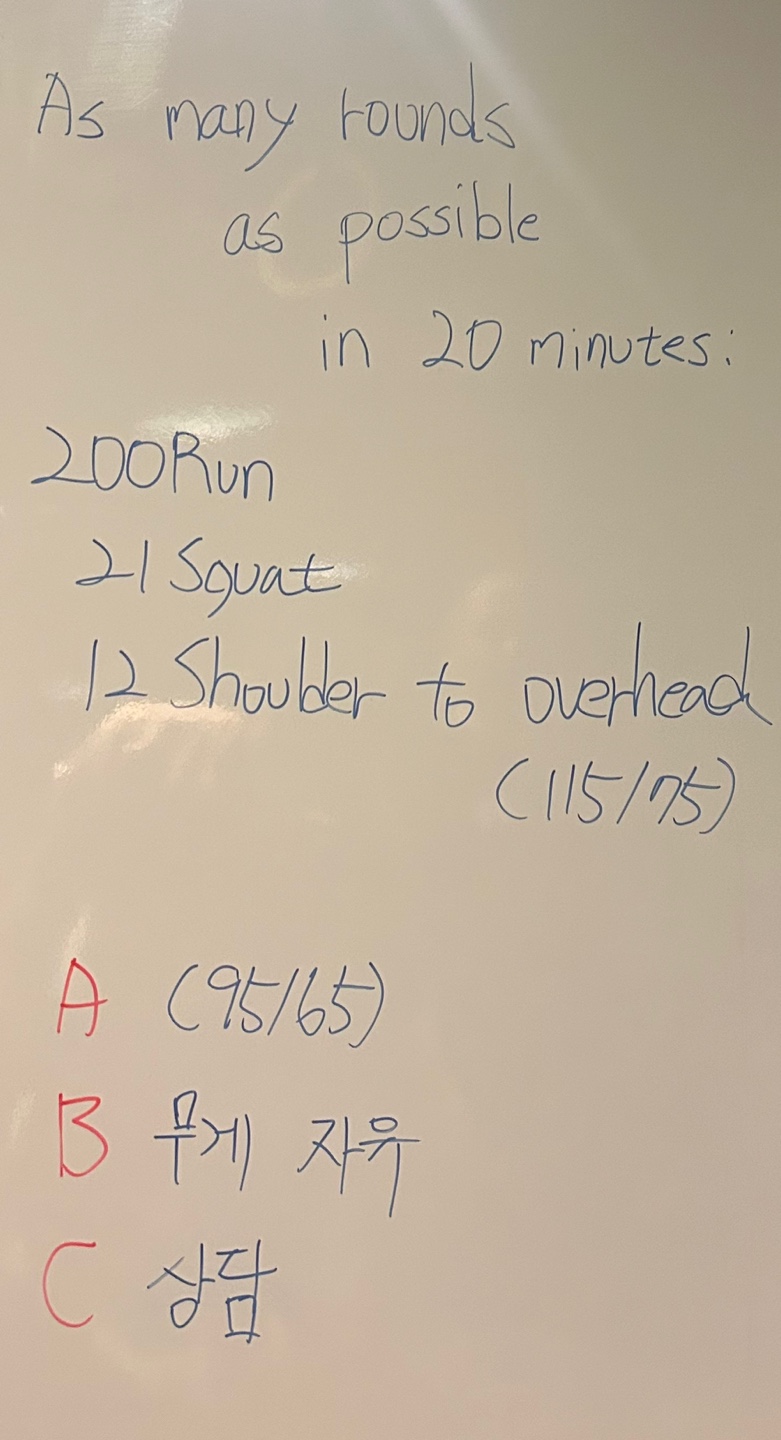 As many rounds
as possible
in 20 minutes:
200Run
21 Squat
12 Shoulder to overhead
(115/75)
A (95/65)
B 무게 자유
C 상담